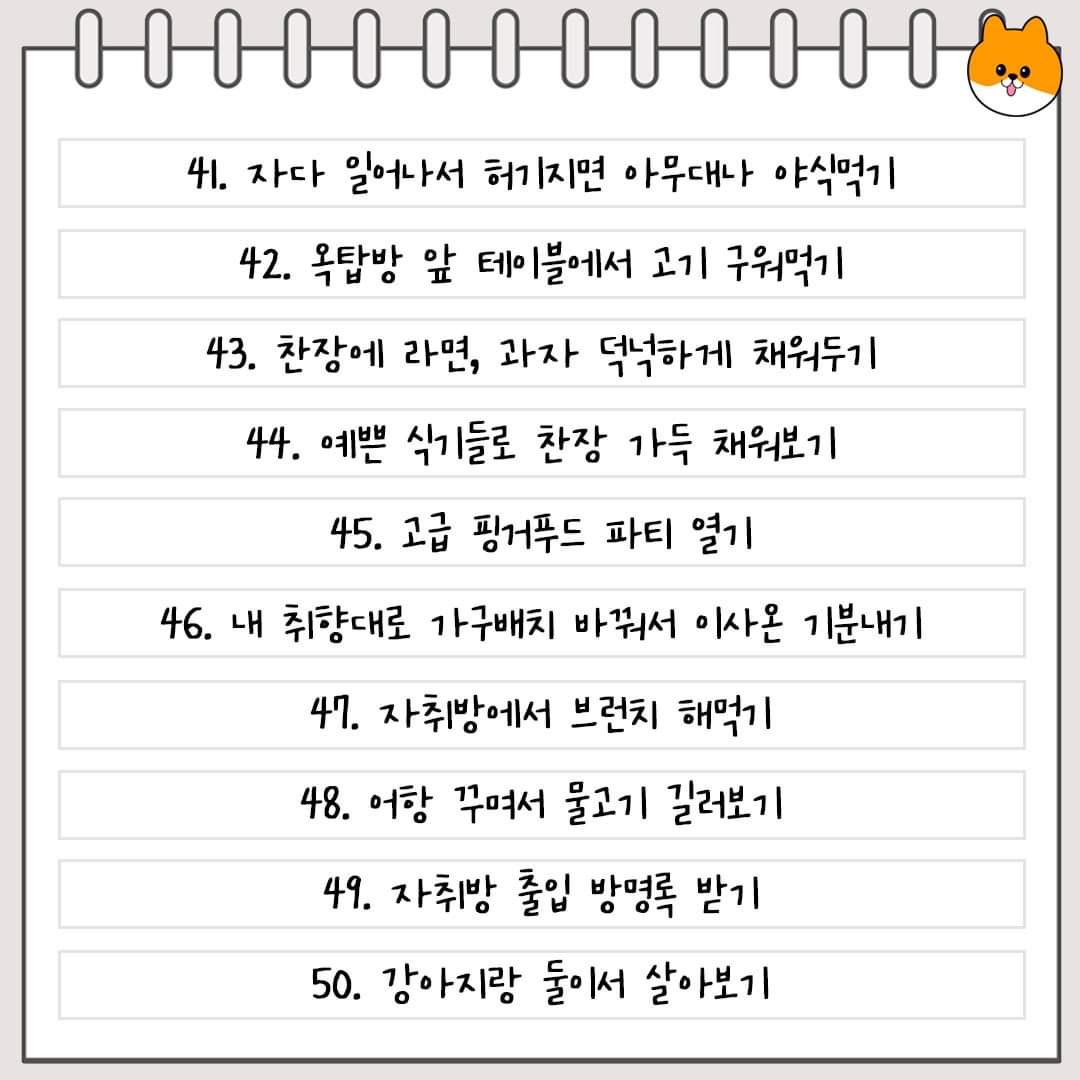 41. 자다 일어나서 허기지면 아무대나 야식먹기
42. 옥탑방 앞 테이블에서 고기 구워먹기
43. 찬장에 라면, 과자 덕넉하게 채워두기
44. 예쁜 식기들로 찬장 가득 채워보기
45. 고급 핑거푸드 파티 열기
46. 내 취향대로 가구배치 바꿔서 이사온 기분내기
47. 자취방에서 브런치 해먹기
48. 어항 꾸며서 물고기 길러보기
49. 자취방 출입 방명록 받기
50. 강아지랑 둘이서 살아보기